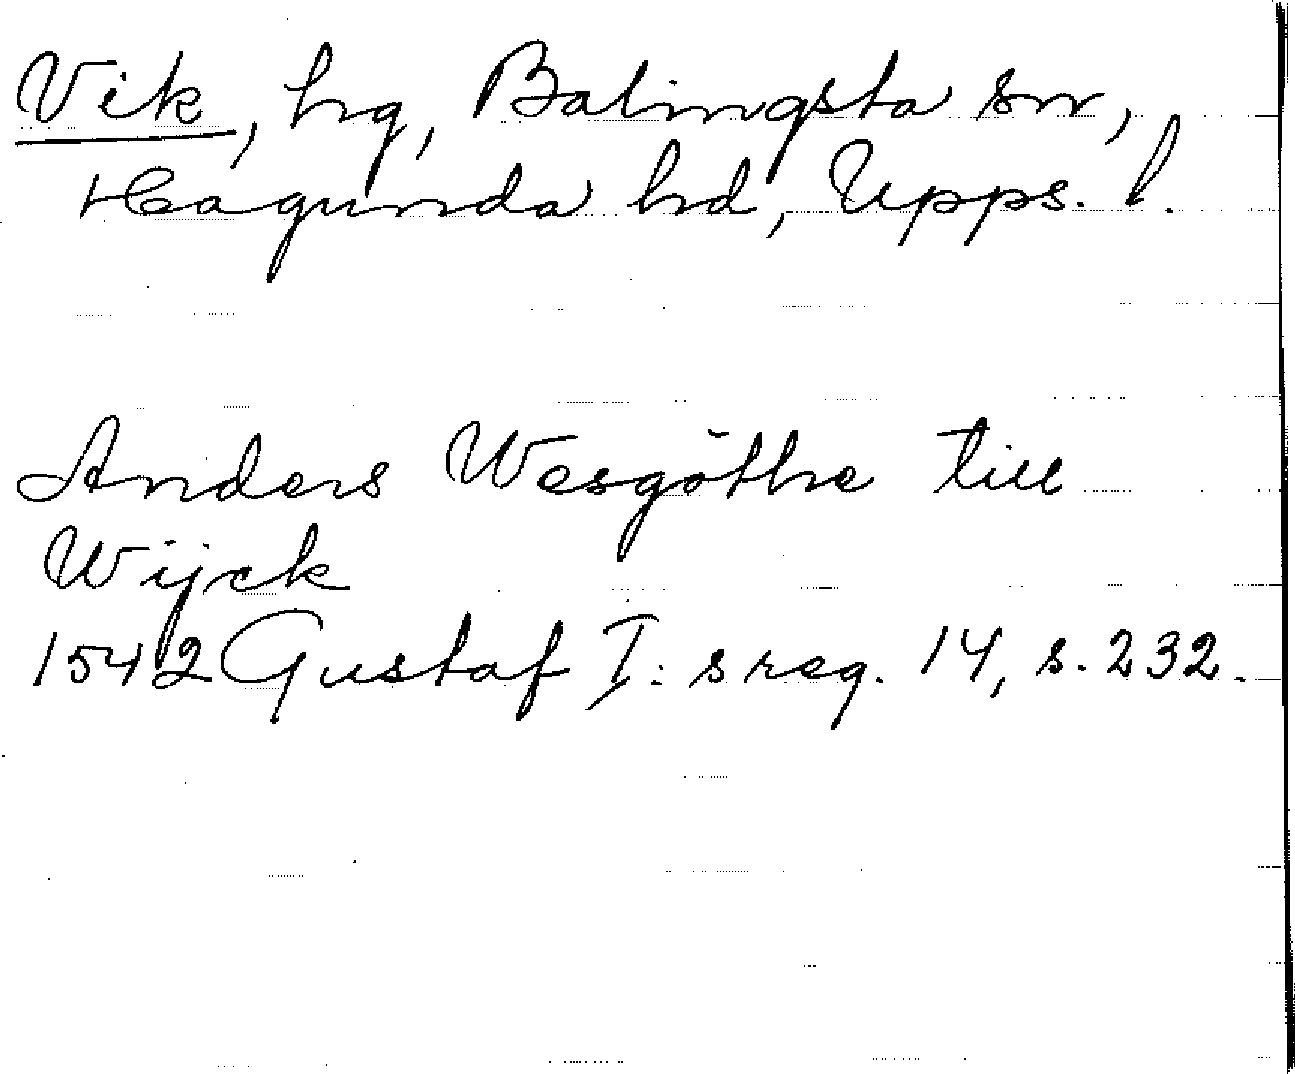 Vik, hg, Balingsta sn,
Hagunda hd, Upps. l.
Anders Wesgöthe till
Wijck
1542 Gustaf I:s reg. 14, s. 232.